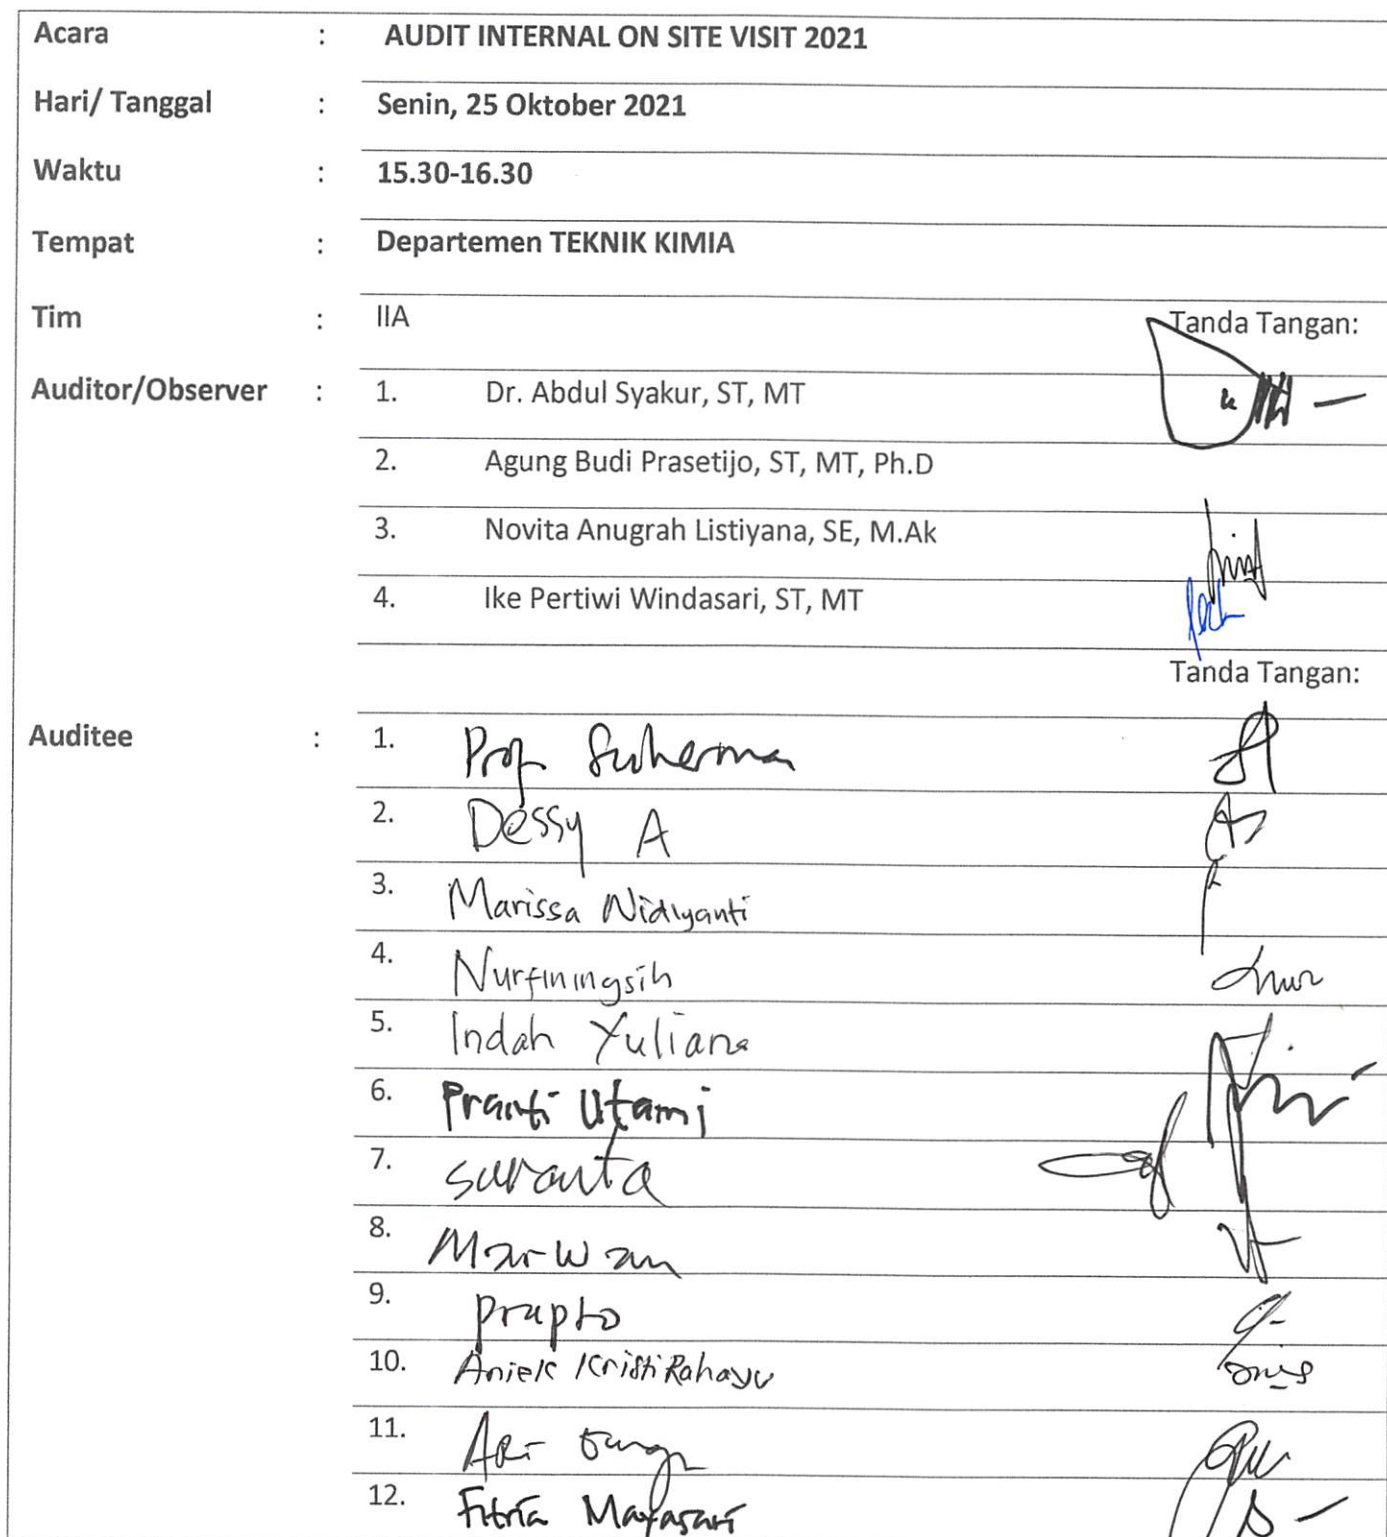 Acara : AUDIT INTERNAL ON SITE VISIT 2021
Hari/ Tanggal : Senin, 25 Oktober 2021
Waktu : 15.30-16.30
Tempat : Departemen TEKNIK KIMIA
Tim : IIA Tanda Tangan:
Auditor/Observer : 1. Dr. Abdul Syakur, ST, MT
2. Agung Budi Prasetijo, ST, MT, Ph.D
3. Novita Anugrah Listiyana, SE, M.Ak
4. Ike Pertiwi Windasari, ST, MT
Tanda Tangan:
Auditee : 1. Prof Suherman
2. Dessy A
3. Marissa Widiyanti
4. Nurfiningsih
5. Indah Yuliana
6. Pranti Utami
7. suranta
8. Marwan
9. prapto
10. Aniek Kristi Rahayu
11. Ari
12. Fitria Mayasari